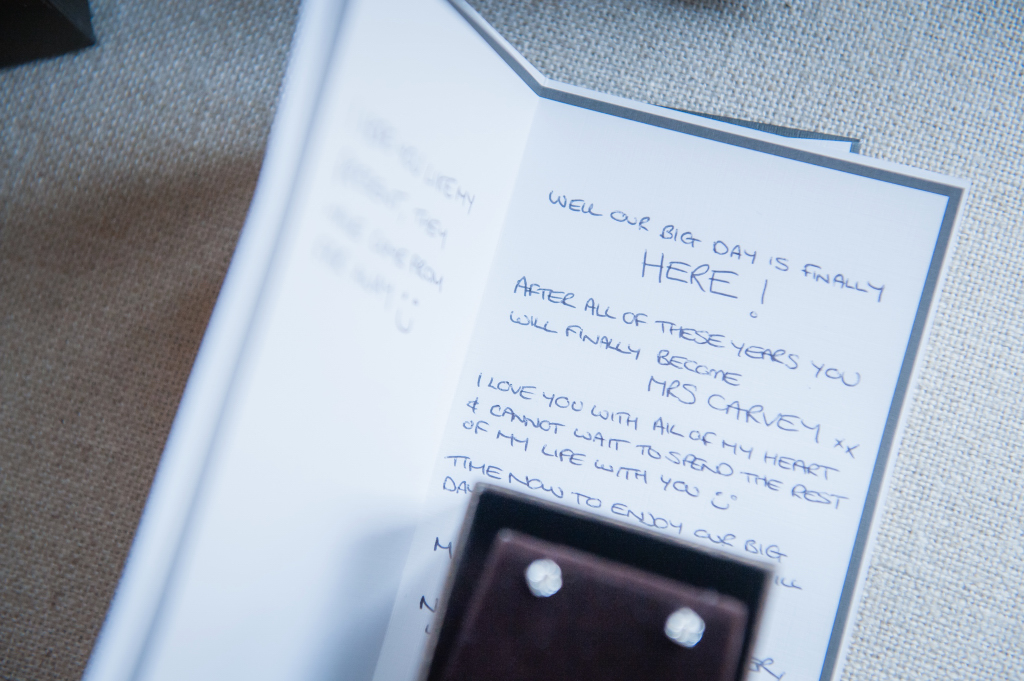 LIKE MY
THEY
WELL OUR BIG DAY IS FINALLY
HERE!
AFTER ALL OF THESE YEARS YOU
WILL FINALLY BECOME
MRS CARVEY xx
I LOVE YOU WITH ALL OF MY HEART
& CANNOT WAIT TO SPEND THE REST
OF MY LIFE WITH YOU :)
TIME NOW TO ENJOY OUR BIG